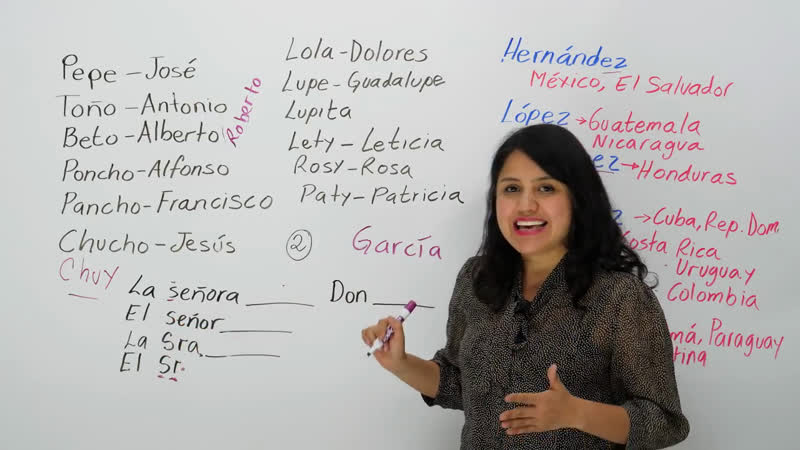 Pepe - José
Toño - Antonio
Beto - Alberto
Roberto
Poncho - Alfonso
Pancho - Francisco
Chucho - Jesús
Chuy
La señora
El señor
La Sra.
El Sr.
Lola - Dolores
Lupe - Guadalupe
Lupita
Lety - Leticia
Rosy - Rosa
Paty - Patricia
2
García
Don
Hernández
México, El Salvador
López → Guatemala
Nicaragua
ez → Honduras
z → Cuba, Rep. Dom
osta Rica
Uruguay
Colombia
má, Paraguay
tina